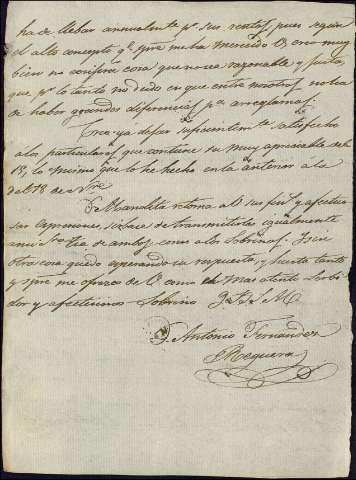 ha de llebar anualmte pr sus rentas, pues segun
el alto concepto qe spre me ha merecido V. creo muy
bien no confiara cosa que no sea razonable y justa,
que pr lo tanto no dudo en que entre nosotros no ha
de haber grandes diferencias pa arreglarnos.
Creo ya dejar suficientemte satisfecho
a los particulares que contiene su muy apreciable del
13, lo mismo que lo he hecho en la anterior á la
del 18 de
retorna a V. sus finas y afectuo
sas expresiones, sirbase de transmitirlas igualmente
a mi Sra Tia de ambos como a los Sobrinos. Y sin
otra cosa quedo esperando su respuesta, y hasta tanto
y spre me ofrezco de V. como su mas atento Serbi
dor y afectisimo Sobrino
Antonio Fernandez
Reguera